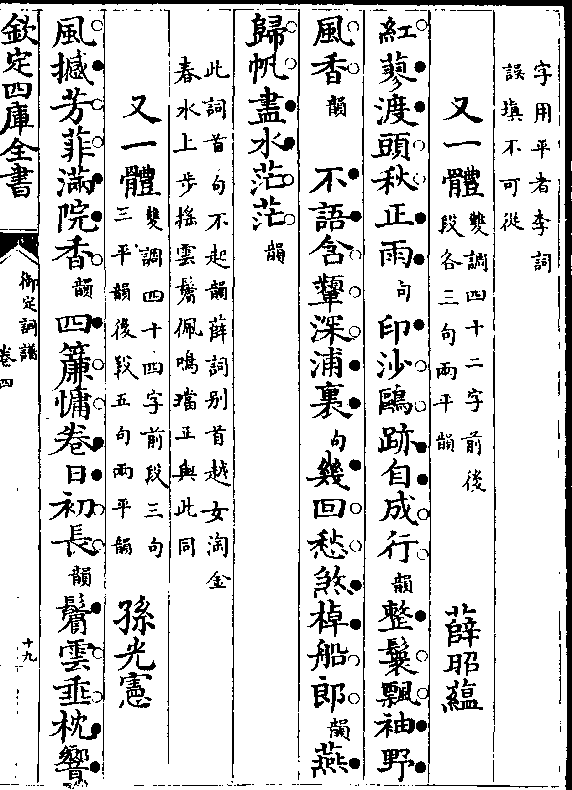 字用平者李詞
誤填不可從
又一體 雙調四十二字前後
段各三句兩平韻 薛昭蘊
紅蓼渡頭秋正雨句印沙鷗跡自成行韻整鬟飄袖野
風香韻 不語含顰深浦裏句幾回愁煞棹船郎韻燕
歸帆盡水茫茫韻
此詞首句不起韻薛詞别首越女淘金
春水上步摇雲鬢佩鳴璫正與此同
又一體 雙調四十四字前段三句
三平韻後段五句兩平韻 孫光憲
風撼芳菲滿院香韻四簾慵卷日初長韻鬢雲垂枕響
欽定四庫全書
御定詞譜
卷四
十九